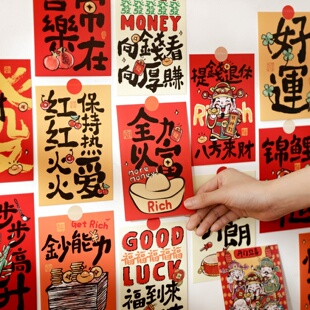 喜樂
常在
MONEY
向錢看
向厚賺
提錢退休
Rich
八方來財
好運
保持熱愛
紅紅火火
全力
富
more money
Rich
錦鯉
步步高升
Get Rich
鈔能力
GOOD
福福福福
LUCK
福到來
朗